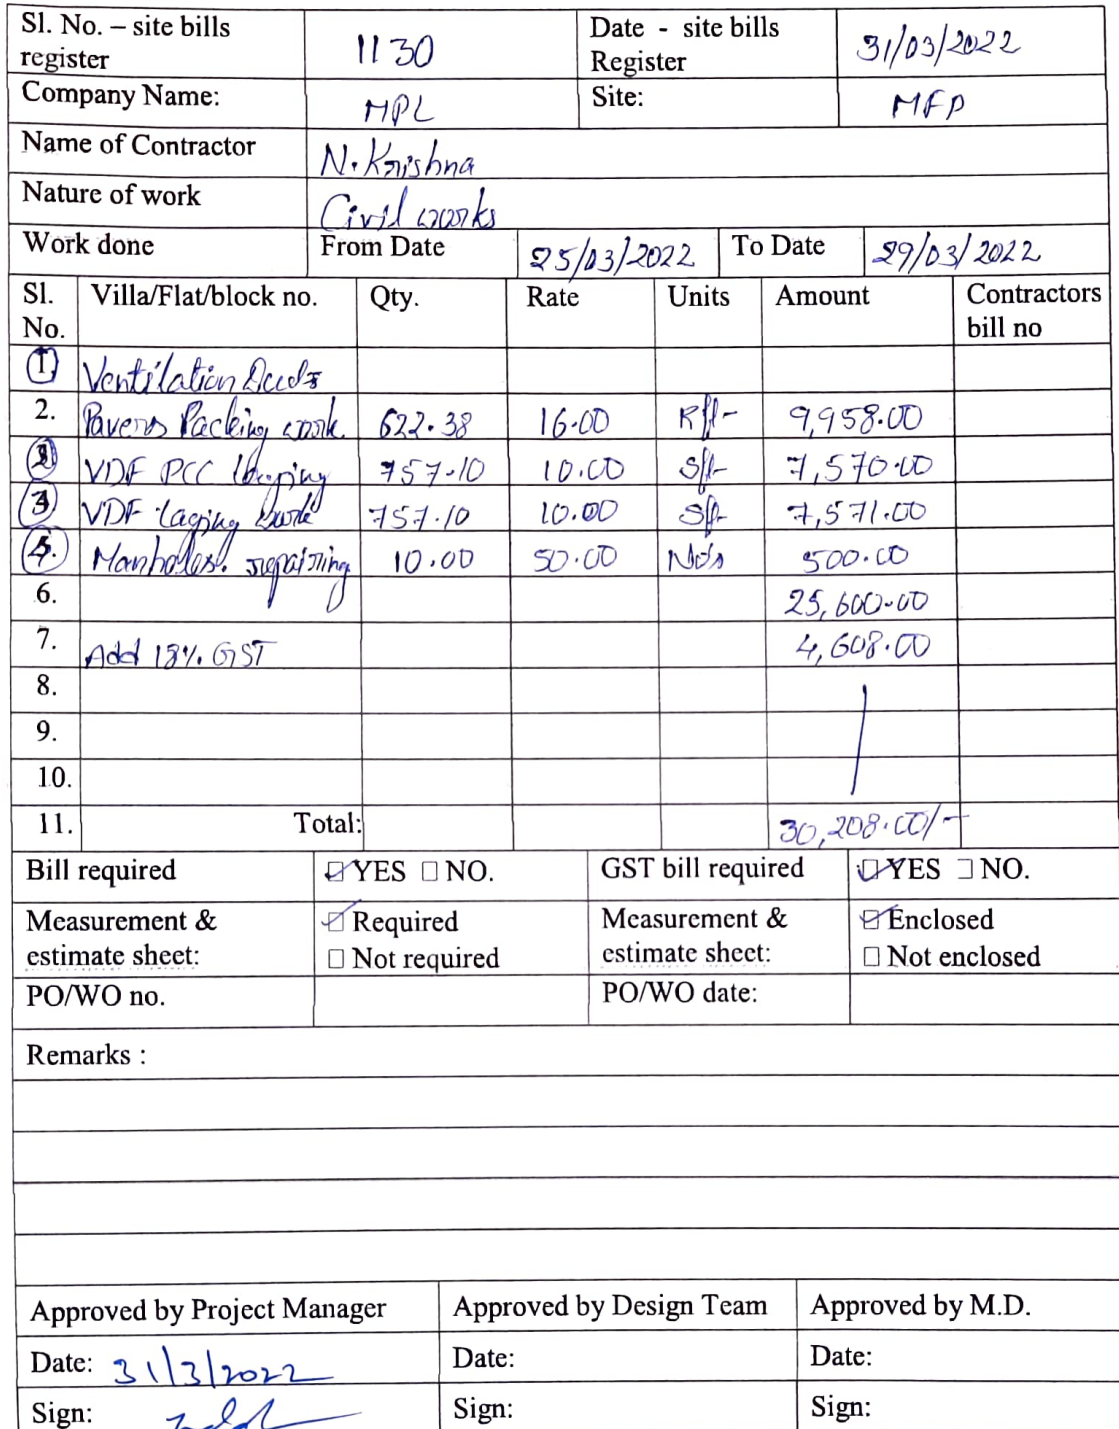 Sl. No. – site bills register 1130 Date - site bills Register 31/03/2022
Company Name: MPL Site: MFP
Name of Contractor N. Krishna
Nature of work Civil works
Work done From Date 25/03/2022 To Date 29/03/2022
Sl. No. Villa/Flat/block no. Qty. Rate Units Amount Contractors bill no
1. Ventilation Ducts
2. Pavers Packing work. 622.38 16.00 Rft- 9,958.00
VDF PCC 757.10 10.00 Sft- 7,570.00
3 VDF work 757.10 10.00 Sft- 7,571.00
Manholes. repairing 10.00 50.00 No's 500.00
6. 25,600.00
7. Add 18% GST 4,608.00
8.
9.
10.
11. Total: 30,208.00/-
Bill required YES NO. GST bill required YES NO.
Measurement & estimate sheet: Required Not required Measurement & estimate sheet: Enclosed Not enclosed
PO/WO no. PO/WO date:
Remarks :
Approved by Project Manager Approved by Design Team Approved by M.D.
Date: 31/3/2022 Date: Date:
Sign: Sign: Sign: